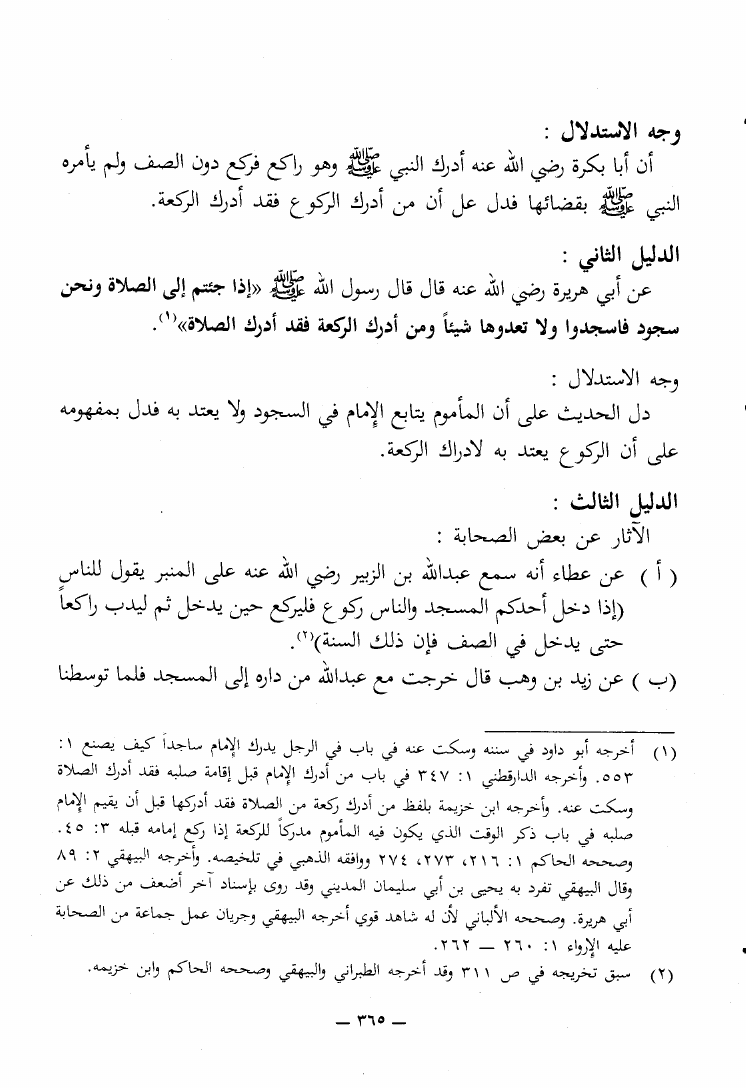 وجه الاستدلال :
أن أبا بكرة رضي الله عنه أدرك النبي ﷺ وهو راكع فركع دون الصف ولم يأمره
النبي ﷺ بقضائها فدل عل أن من أدرك الركوع فقد أدرك الركعة.
الدليل الثاني :
عن أبي هريرة رضي الله عنه قال قال رسول الله ﷺ «إذا جئتم إلى الصلاة ونحن
سجود فاسجدوا ولا تعدوها شيئاً ومن أدرك الركعة فقد أدرك الصلاة»(١).
وجه الاستدلال :
دل الحديث على أن المأموم يتابع الإمام في السجود ولا يعتد به فدل بمفهومه
على أن الركوع يعتد به لادراك الركعة.
الدليل الثالث :
الآثار عن بعض الصحابة :
( أ ) عن عطاء أنه سمع عبدالله بن الزبير رضي الله عنه على المنبر يقول للناس
(إذا دخل أحدكم المسجد والناس ركوع فليركع حين يدخل ثم ليدب راكعاً
حتى يدخل في الصف فإن ذلك السنة)(٢).
(ب ) عن زيد بن وهب قال خرجت مع عبدالله من داره إلى المسجد فلما توسطنا
(١) أخرجه أبو داود في سننه وسكت عنه في باب في الرجل يدرك الإمام ساجداً كيف يصنع ١:
٥٥٣. وأخرجه الدارقطني ١: ٣٤٧ في باب من أدرك الإمام قبل إقامة صلبه فقد أدرك الصلاة
وسكت عنه. وأخرجه ابن خزيمة بلفظ من أدرك ركعة من الصلاة فقد أدركها قبل أن يقيم الإمام
صلبه في باب ذكر الوقت الذي يكون فيه المأموم مدركاً للركعة إذا ركع إمامه قبله ٣: ٤٥.
وصححه الحاكم ١: ٢١٦، ٢٧٣، ٢٧٤ ووافقه الذهبي في تلخيصه. وأخرجه البيهقي ٢: ٨٩
وقال البيهقي تفرد به يحيى بن أبي سليمان المديني وقد روى بإسناد آخر أضعف من ذلك عن
أبي هريرة. وصححه الألباني لأن له شاهد قوي أخرجه البيهقي وجريان عمل جماعة من الصحابة
عليه الإرواء ١: ٢٦٠ — ٢٦٢.
(٢) سبق تخريجه في ص ٣١١ وقد أخرجه الطبراني والبيهقي وصححه الحاكم وابن خزيمه.
— ٣٦٥ —